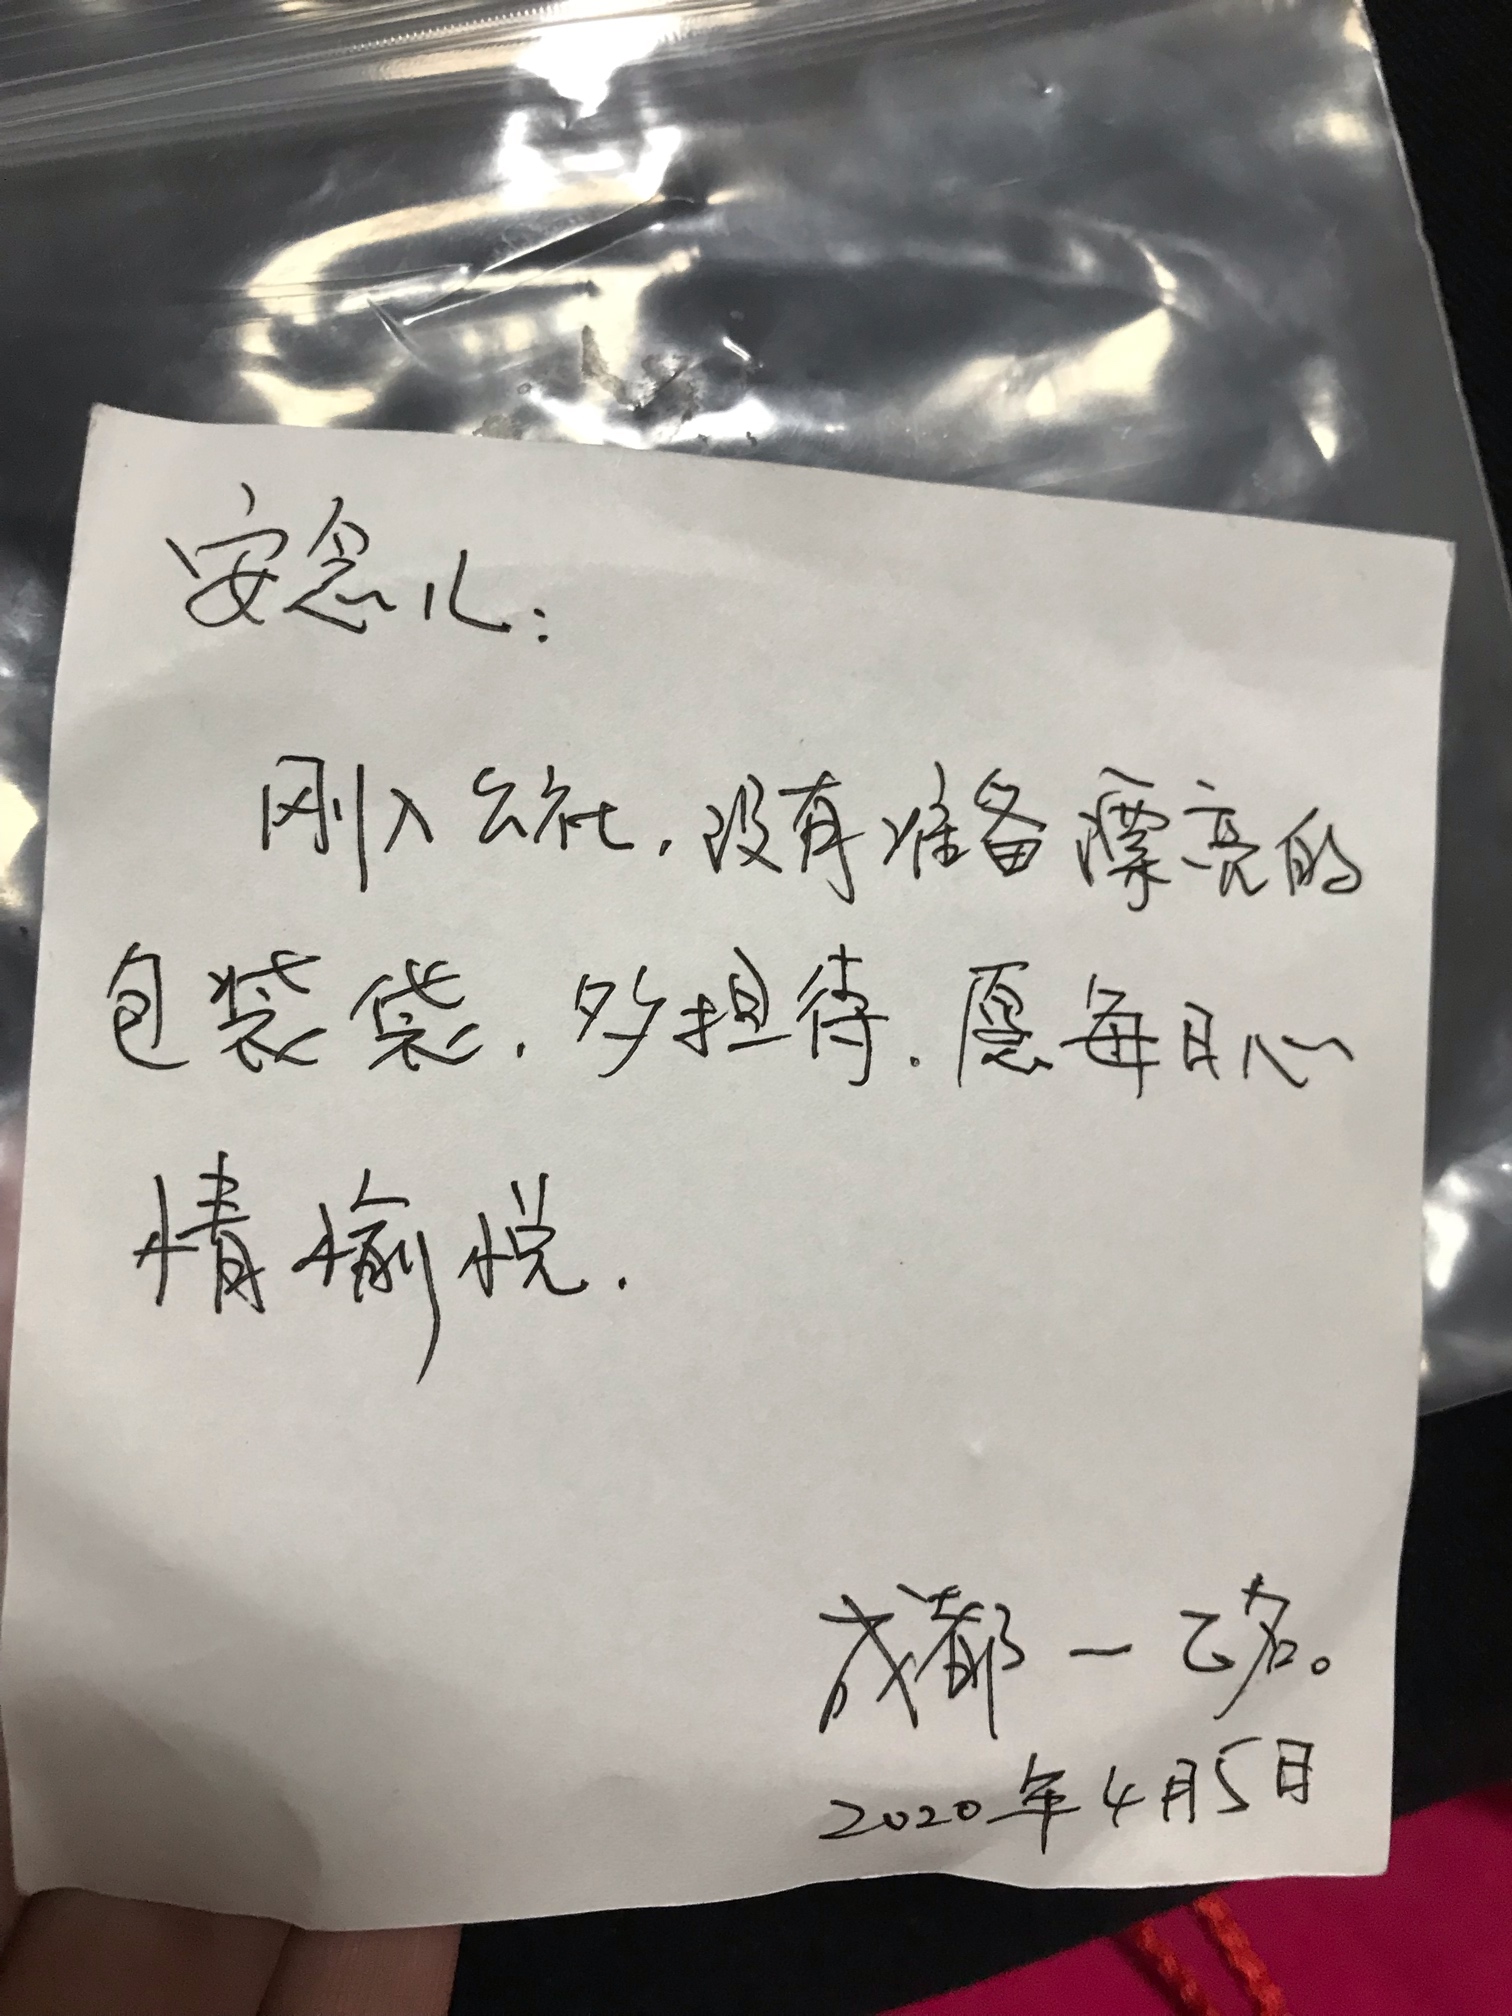 安念儿:
刚入云社,没有准备漂亮的
包装袋,多担待.愿每日心
情愉悦.
成都一乙名。
2020年4月5日